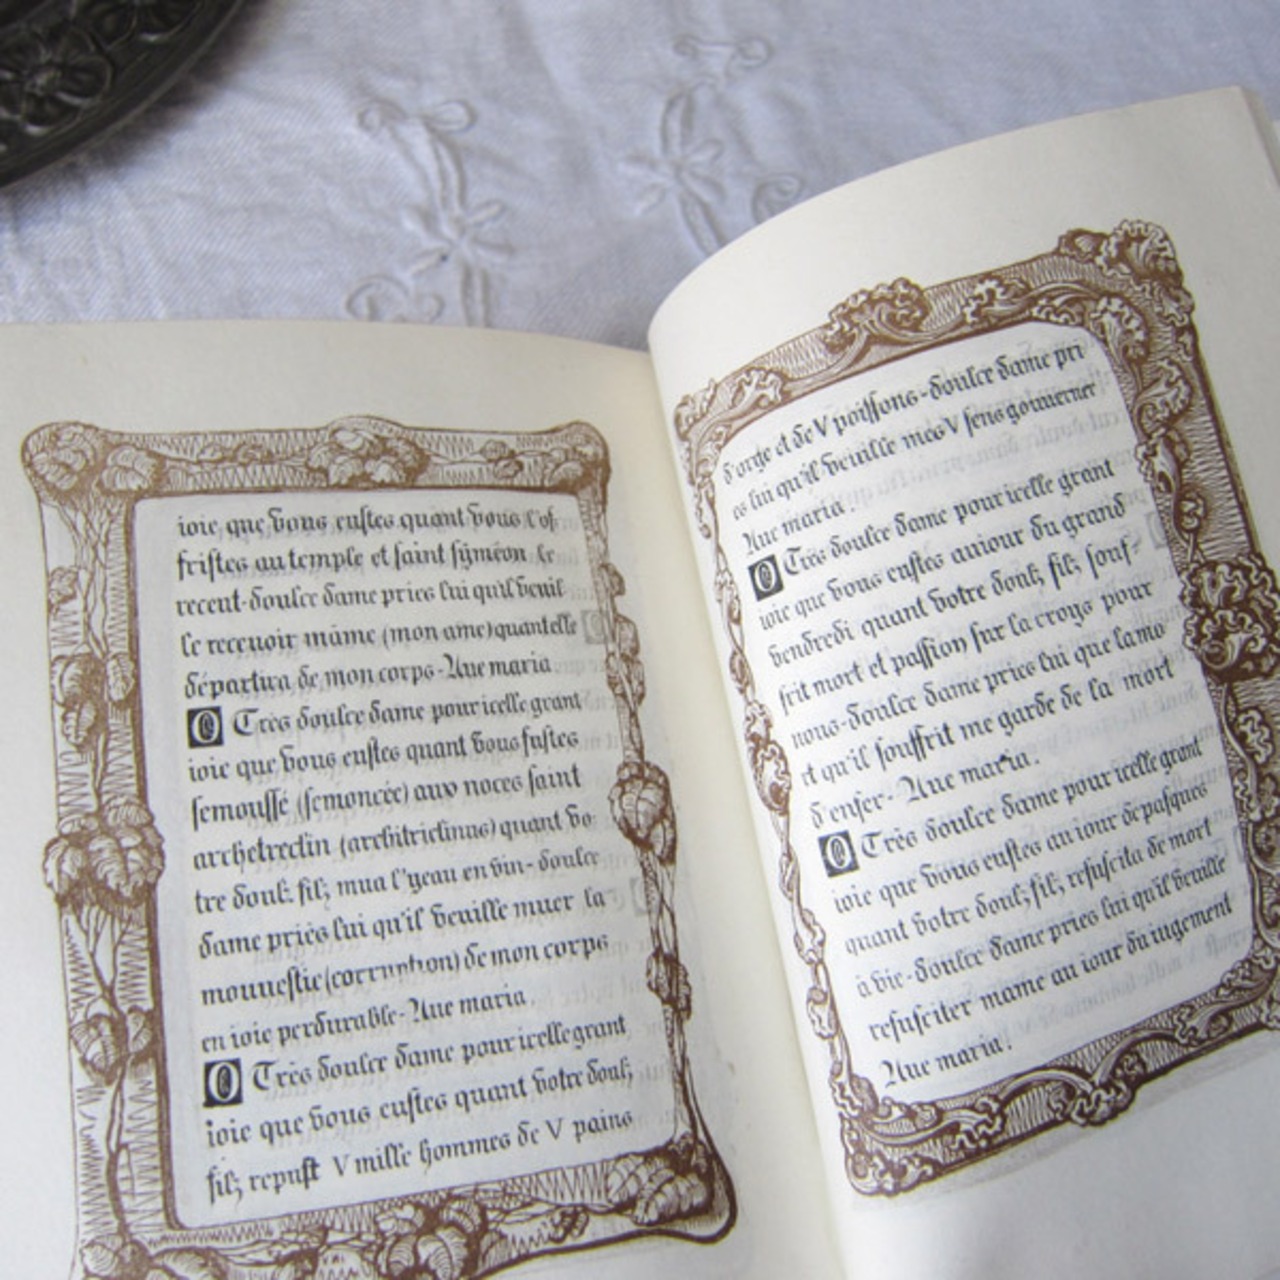 ioie que vous eustes quant vous l'of
fristes au temple et saint syméon le
receut-doulce dame pries lui qu'il veuil-
le recevoir mâme (mon ame) quant elle
départira de mon corps-Aue maria
O Très doulce dame pour icelle grant
ioie que vous eustes quant vous fustes
semoussé (semoncée) aux noces saint
archetreclin (architriclinus) quant vo-
tre doulz filz mua l'yeau en vin-doulce
dame priès lui qu'il veuille muer la
mouuestie (corruption) de mon corps
en ioie perdurable-Aue maria.
O Très doulce dame pour icelle grant
ioie que vous eustes quant votre doulz
filz reput V mille hommes de V pains
d'orge et de V poissons-doulce dame pri
es lui qu'il veuille mes V sens gouuerner
Aue maria.
O Très doulce dame pour icelle grant
ioie que vous eustes auiour du grand
vendredi quant votre doulz filz souf-
frit mort et passion sur la croys pour
nous-doulce dame pries lui que la mo
rt qu'il souffrit me garde de la mort
d'enfer-Aue maria.
O Très doulce dame pour icelle grant
ioie que vous eustes au iour de pasques
quant votre doulz filz resuscita de mort
à vie-doulce dame pries lui qu'il veuille
resusciter mame au iour du iugement
Aue maria.